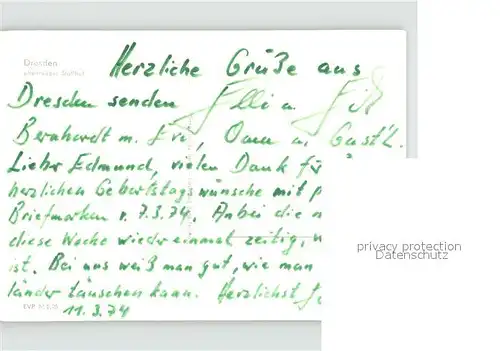 Dresden
Herzliche Grüße aus
Dresden senden Elli u.
Bernhardt m. Eva, Oma u. Gust'l.
Lieber Edmund, vielen Dank für
herzlichen Geburtstagswünsche mit
Briefmarken v. 7.3.74. Anbei die
diese Woche wiedereinmal zeitig,
ist. Bei uns weiß man gut, wie man
länder täuschen kann. Herzlichst
11.3.74
privacy protection
Datenschutz